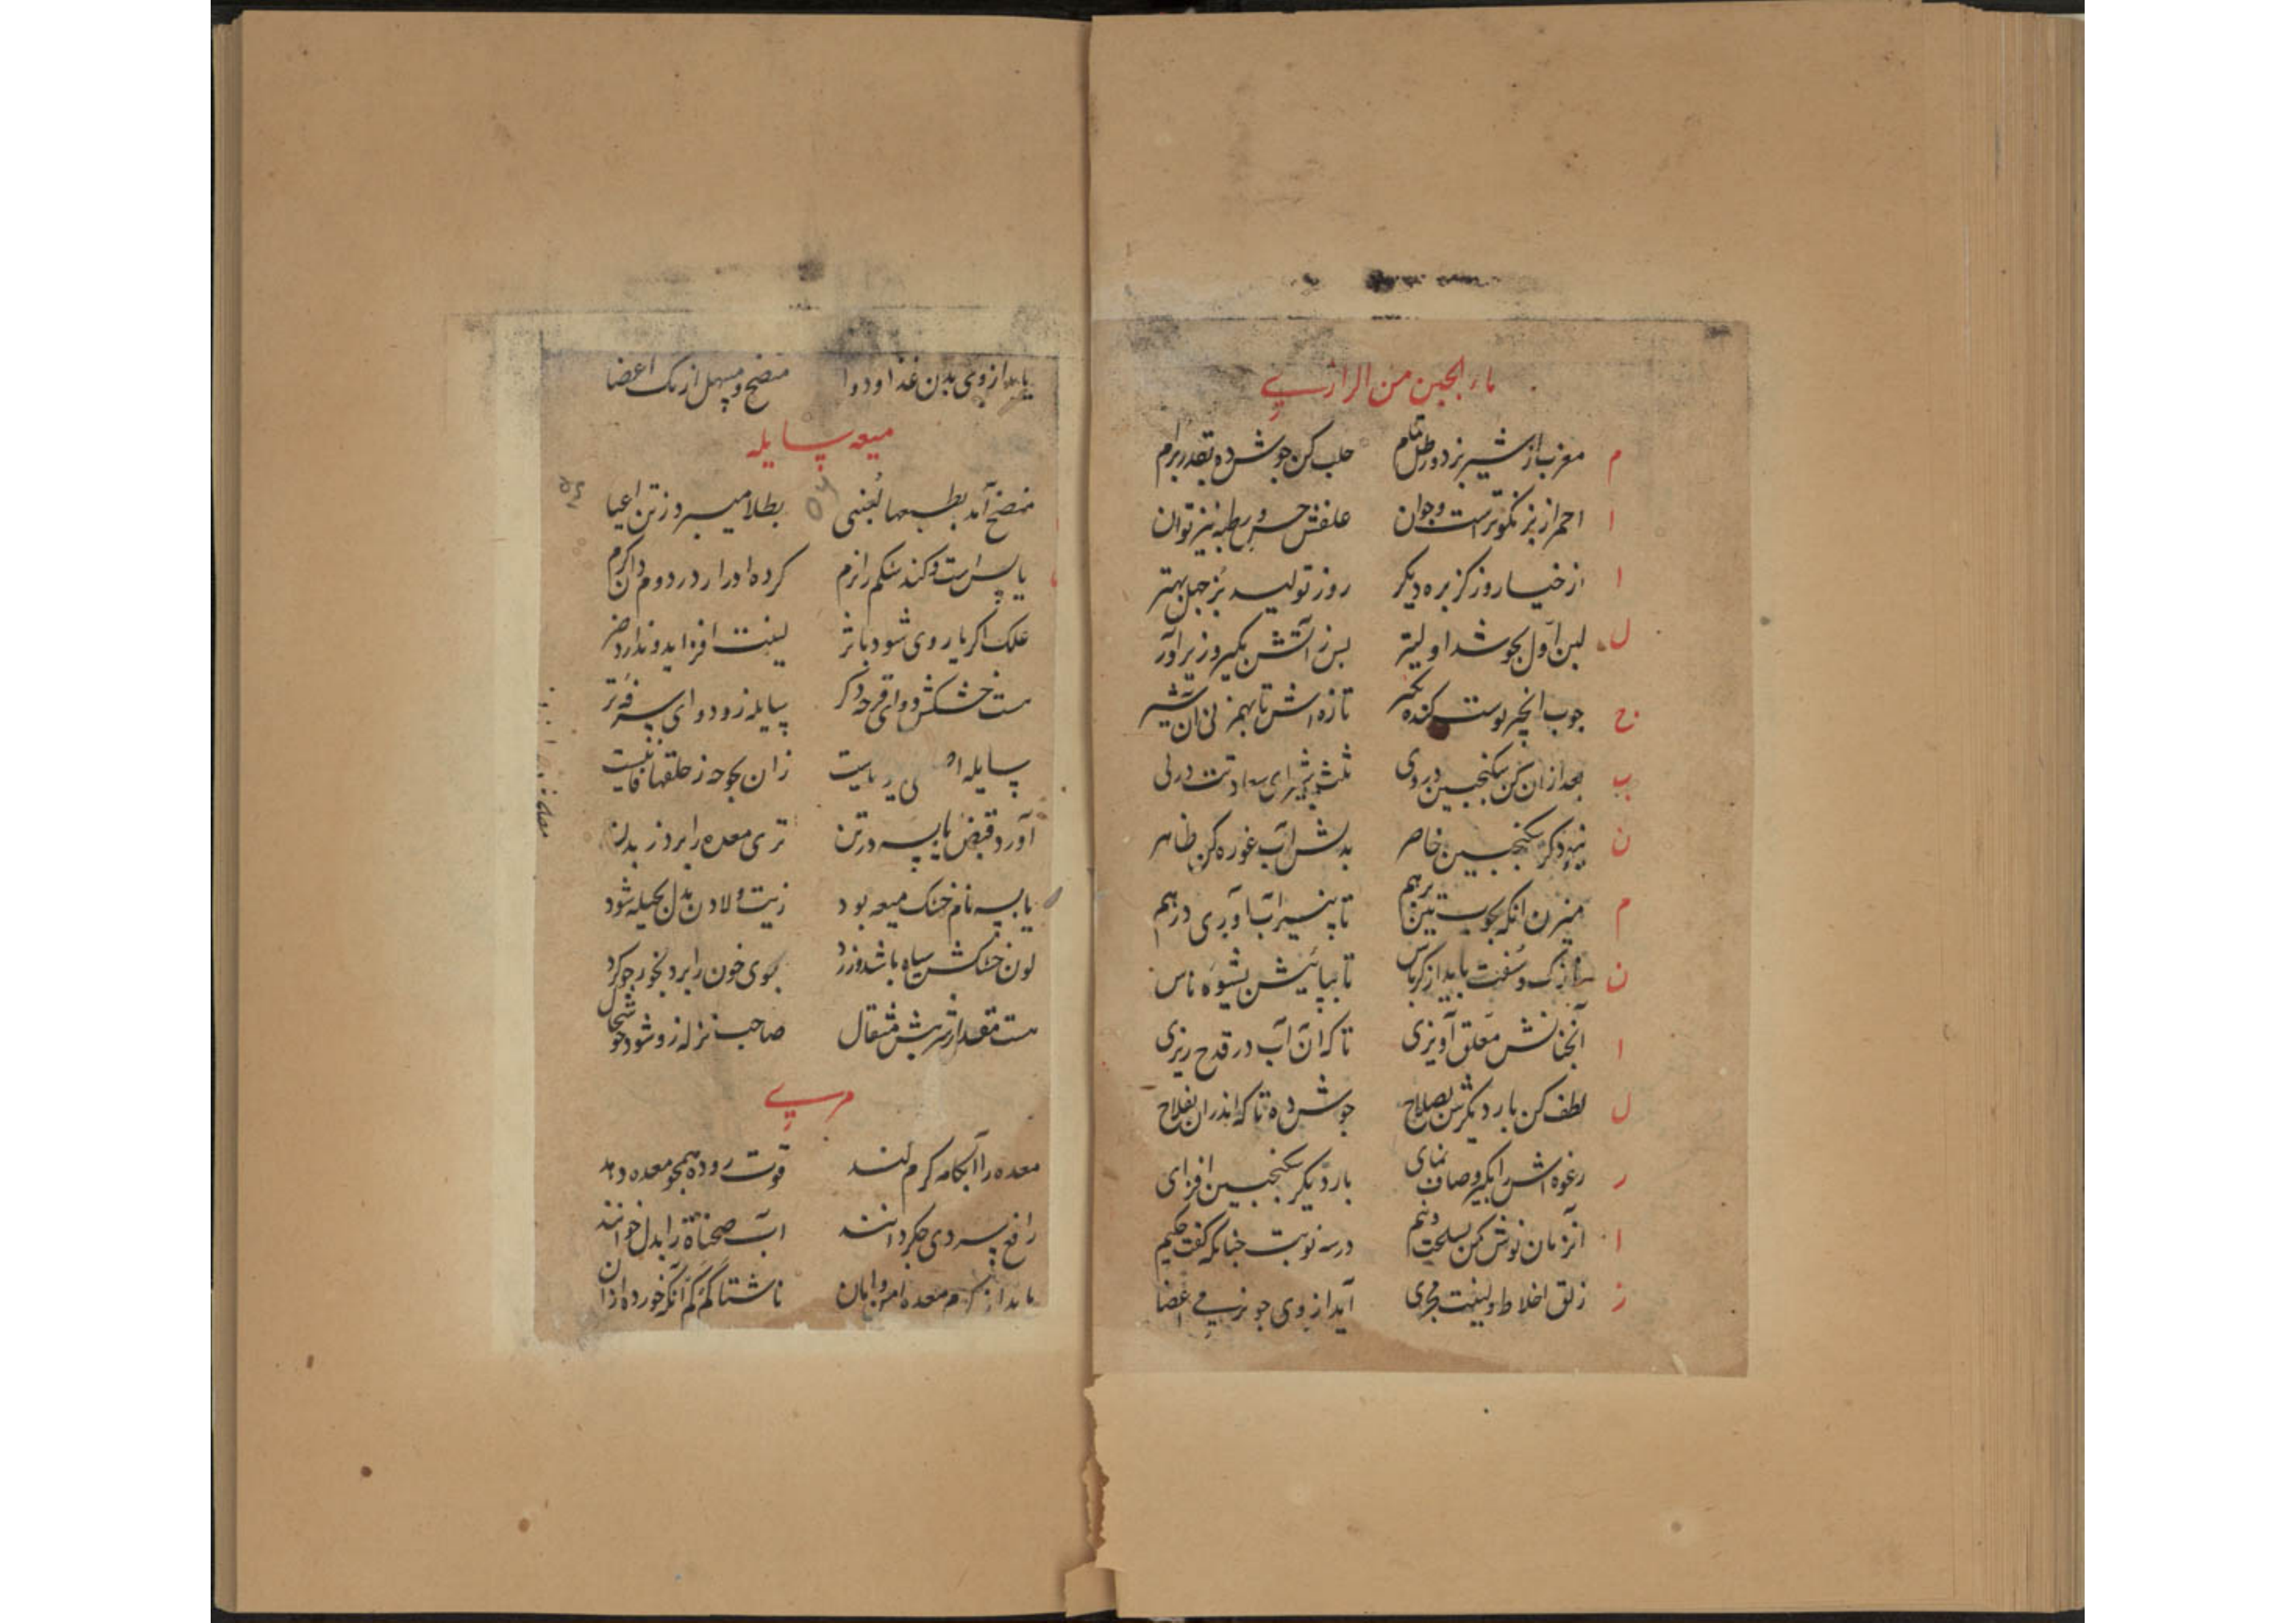 ماء الجبن من الرازی
م مغرب از شیر بز دو رطل تمام حلب کن جوش ده بقدر برام
ا احمر از بز نکوتر است و جوان علفش خس و رطبه نیز توان
ا از خیار و ز کزبره دیکر روز تولید بز جبل بهتر
ل لبن اول بجوشد اولیتر پس ز آتش بگیر و زیر آور
ج چوب انجیر پوست کنده بگیر تازه اش تا بهم زنی آن شیر
ب بعد از آن کن سکنجبین در وی ثلث
ن نبود کر سکنجبین حاضر بدلش آب غوره کن ظاهر
م میزن آنکه بچوب تین برهم تا پنیر آب آوری درهم
ن نازک و سفت باید از کرباس تا بپالیش بشیوه ناس
ا آنچنانش معلق آویزی تا که آن آب در قدح ریزی
ل لطف کن بار دیکرش بصلاح جوش ده تا که اندر آن بفلاح
ر رغوه اش را بگیر و صاف نمای بار دیکر سکنجبین افزای
ا آنزمان نوش کن در سه نوبت چنانکه گفت حکیم
ز زلق اخلاط و لینت مجری آید از وی چو نرمی اعضا
یابد از وی بدن غذا و دوا منضج و مسهل از یک اعضا
میعه سایله
منضج آمد بطبعها یعنی بطلا میبرد ز تن اعیا
یابس است و کند شکم را نرم کرده ادرار در دوم دان کرم
علک اکر یار وی شود باثر لینت افزاید و ندارد ضر
هست خشکش دوای قرحه دکر سایله زو دوای سرفه تر
سایله زان بحوحه ز حلقها فانیست
آورد قبض یابسه در تن تری معده را برد ز بدن
یابسه نام خشک میعه بود زیت و لادن بدل بحیله شود
لون خشکش سیاه باشد و زرد بوی خون را برد بخور چو کرد
هست مقدار شربتش مثقال صاحب نزله زو شود خوشحال
مری
معده را آبکامه کرم کند قوت روده همچو معده دهد
رافع سردی جکر دانند آب صحناة را بدل خوانند
یابد از کرم معده امروا مان ناشتا کم کم آنکه خورده از آن